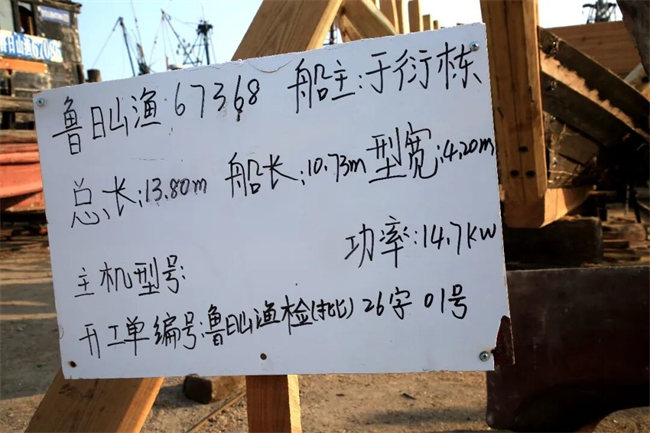 鲁日山渔:67368 船主:于衍栋
总长:13.80m 船长:10.73m 型宽:4.20m
主机型号: 功率:14.7KW
开工单编号:鲁日山渔检(批)26字 01号